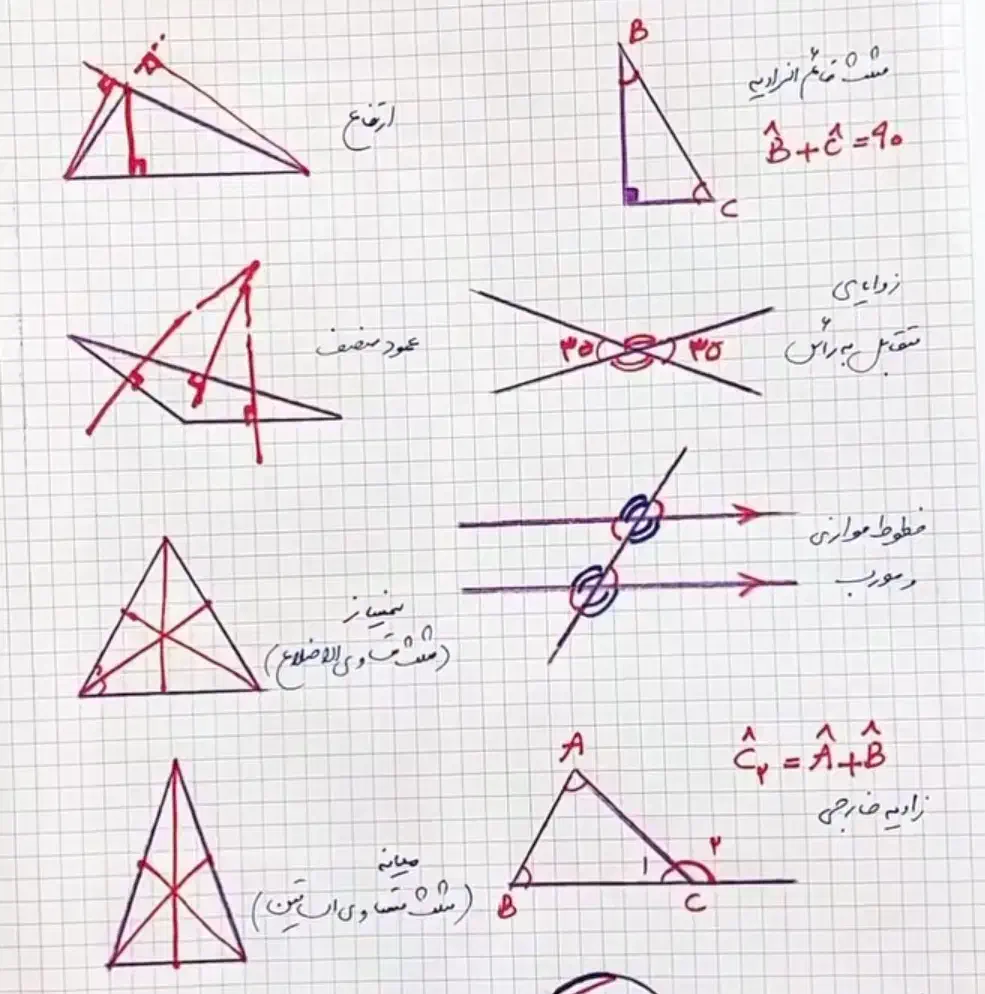 مثلث قائم الزاویه
B
B̂ + Ĉ = ۹۰
C
ارتفاع
زوایای
متقابل به رأس
۳۵
۳۵
عمود منصف
خطوط موازی
و مورب
نیمساز
(مثلث متساوی الاضلاع)
A
Ĉ۲ = Â + B̂
زاویه خارجی
۱
۲
B
C
میانه
(مثلث متساوی الساقین)